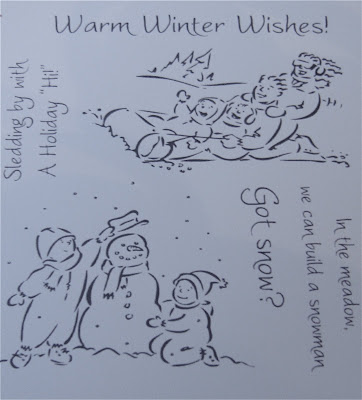 Warm Winter Wishes!
Sledding by with
A Holiday "Hi!"
In the meadow,
we can build a snowman
Got snow?